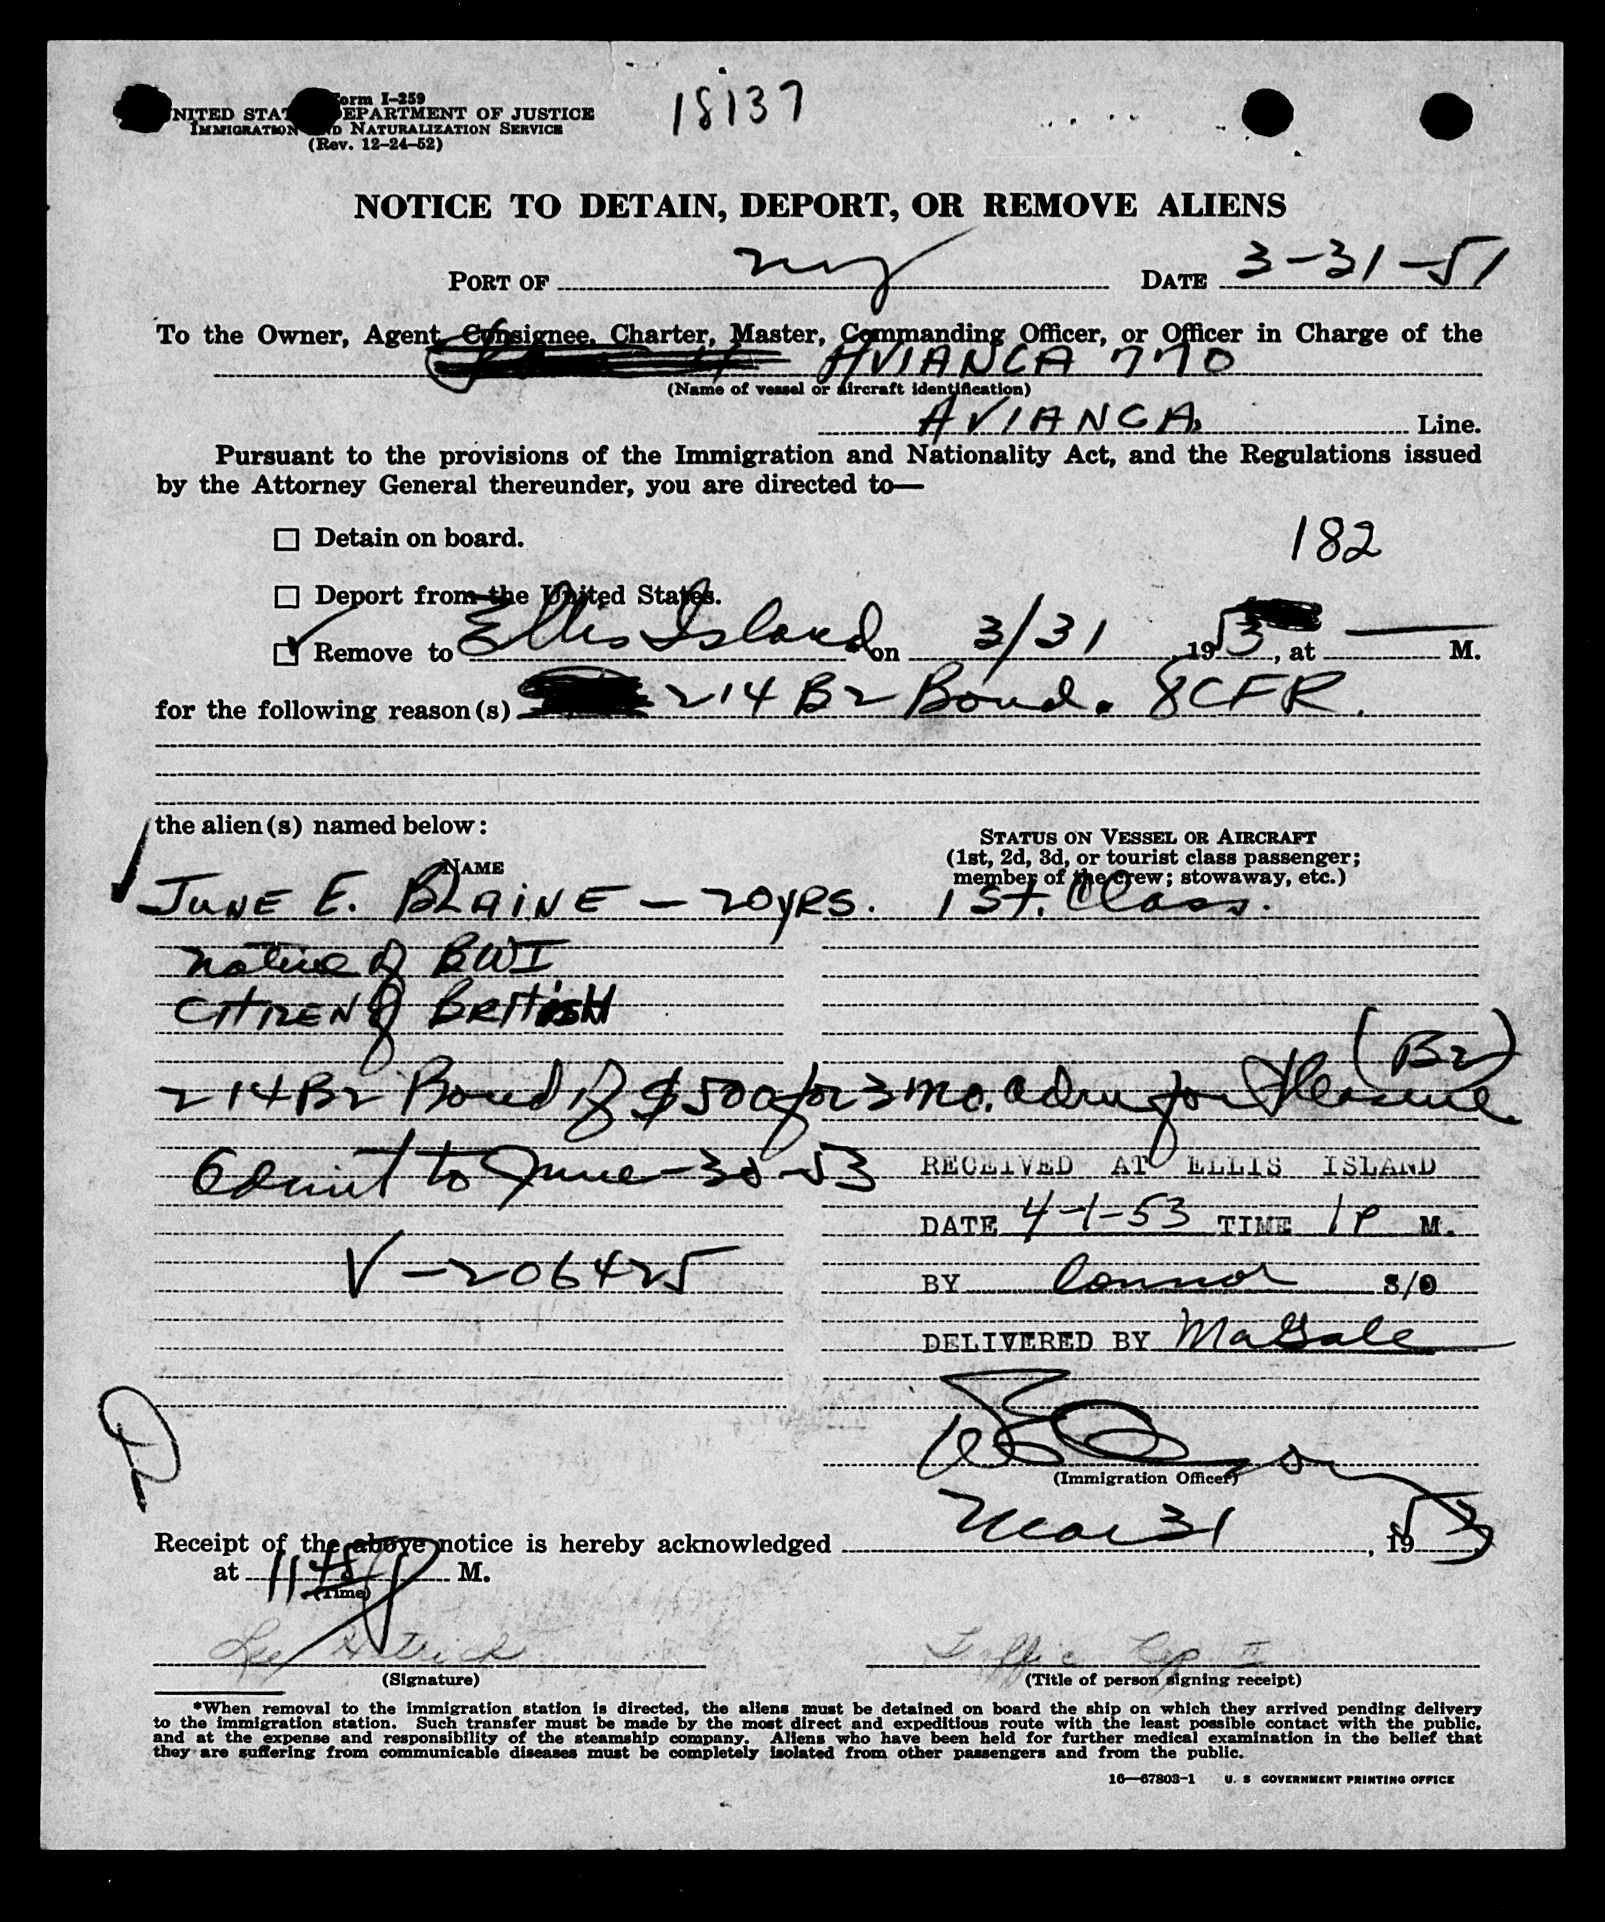 Form I-259
18137
UNITED STATES DEPARTMENT OF JUSTICE
IMMIGRATION AND NATURALIZATION SERVICE
(Rev. 12-24-52)
NOTICE TO DETAIN, DEPORT, OR REMOVE ALIENS
PORT OF NY DATE 3-31-51
To the Owner, Agent, Consignee, Charter, Master, Commanding Officer, or Officer in Charge of the
AVIANCA 770
(Name of vessel or aircraft identification)
AVIANCA Line.
Pursuant to the provisions of the Immigration and Nationality Act, and the Regulations issued
by the Attorney General thereunder, you are directed to—
☐ Detain on board.
182
☐ Deport from the United States.
☑ Remove to Ellis Island on 3/31, 1953, at — M.
for the following reason(s) 214 B2 Bond. 8CFR.
the alien(s) named below:
STATUS ON VESSEL OR AIRCRAFT
(1st, 2d, 3d, or tourist class passenger;
NAME
member of the crew; stowaway, etc.)
JUNE E. BLAINE — 20yRS. 1st. Class.
native of BWI
CITIZEN of BRITISH
(B2)
214B2 Bond of $500 for 3 mo. adm for Pleasure.
Admit to June-30-53
RECEIVED AT ELLIS ISLAND
DATE 4-1-53 TIME 1 P M.
V-206425
BY Connor S/O
DELIVERED BY MaGale
(Immigration Officer)
Receipt of the above notice is hereby acknowledged Mar 31, 1953
at 11 45 P M.
(Time)
(Signature)
(Title of person signing receipt)
*When removal to the immigration station is directed, the aliens must be detained on board the ship on which they arrived pending delivery
to the immigration station. Such transfer must be made by the most direct and expeditious route with the least possible contact with the public,
and at the expense and responsibility of the steamship company. Aliens who have been held for further medical examination in the belief that
they are suffering from communicable diseases must be completely isolated from other passengers and from the public.
16—67803-1 U. S GOVERNMENT PRINTING OFFICE